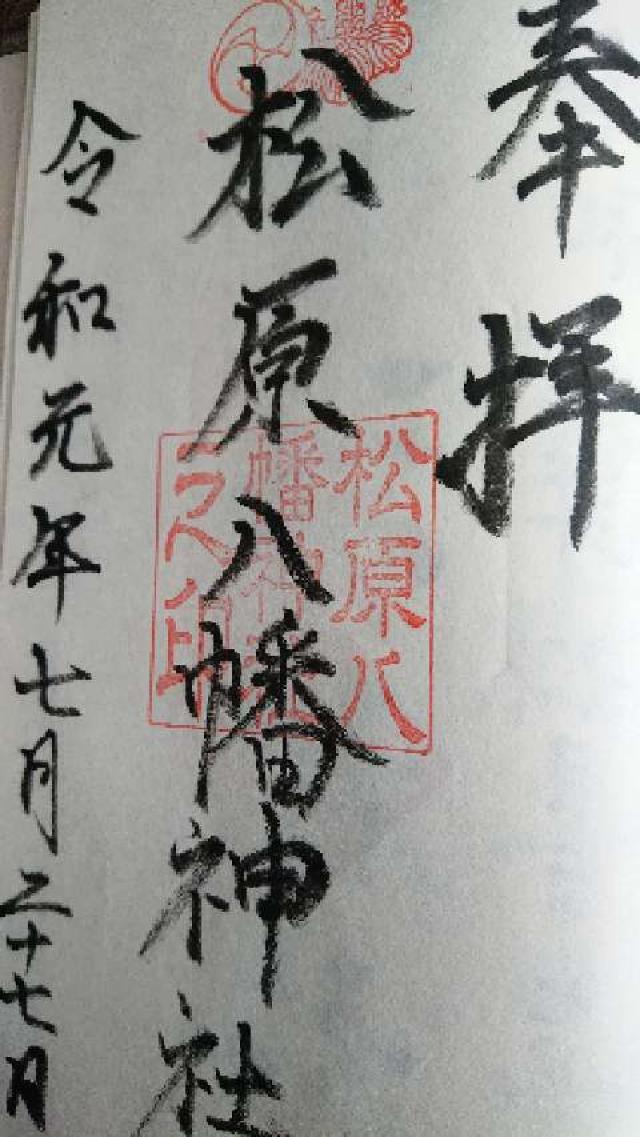 奉拝
松原八幡神社
令和元年七月二十七日
松原八
幡神社
之印